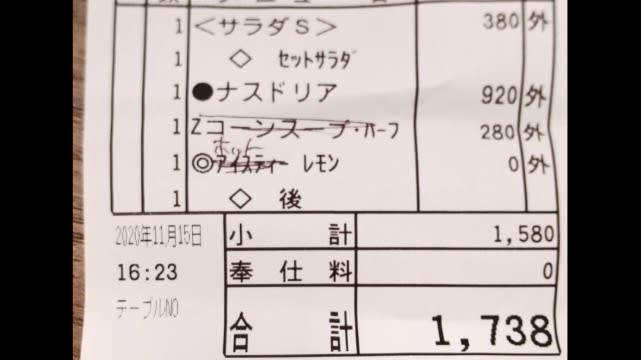 1 <サラダS> 380 外
1 ◇ セットサラダ
1 ●ナスドリア 920 外
1 Zコーンスープ・ハーフ 280 外
ホット
1 ◎アイスティー レモン 0 外
1 ◇ 後
2020年11月15日 小計 1,580
16:23 奉仕料 0
テーブルNO
合計 1,738